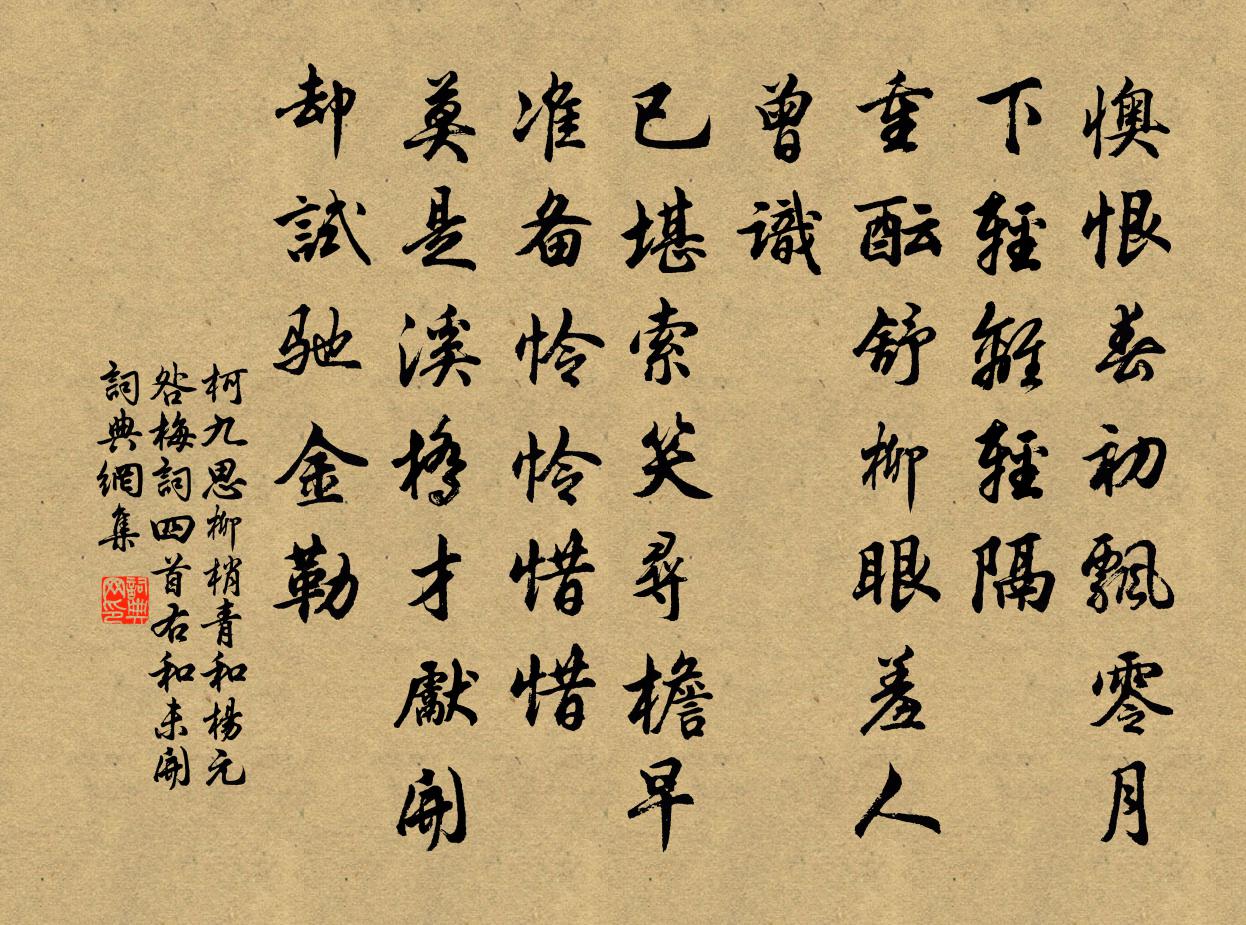 懊恨春初飄零月
下輕離輕隔
重酝舒柳眼羞人
曾識
已堪索笑尋檐早
准备怜怜惜惜
莫是溪橋才獻開
却試驰金勒
柯九思柳梢青和楊元
咎梅詞四首右和未開
詞典網集
詞典网印